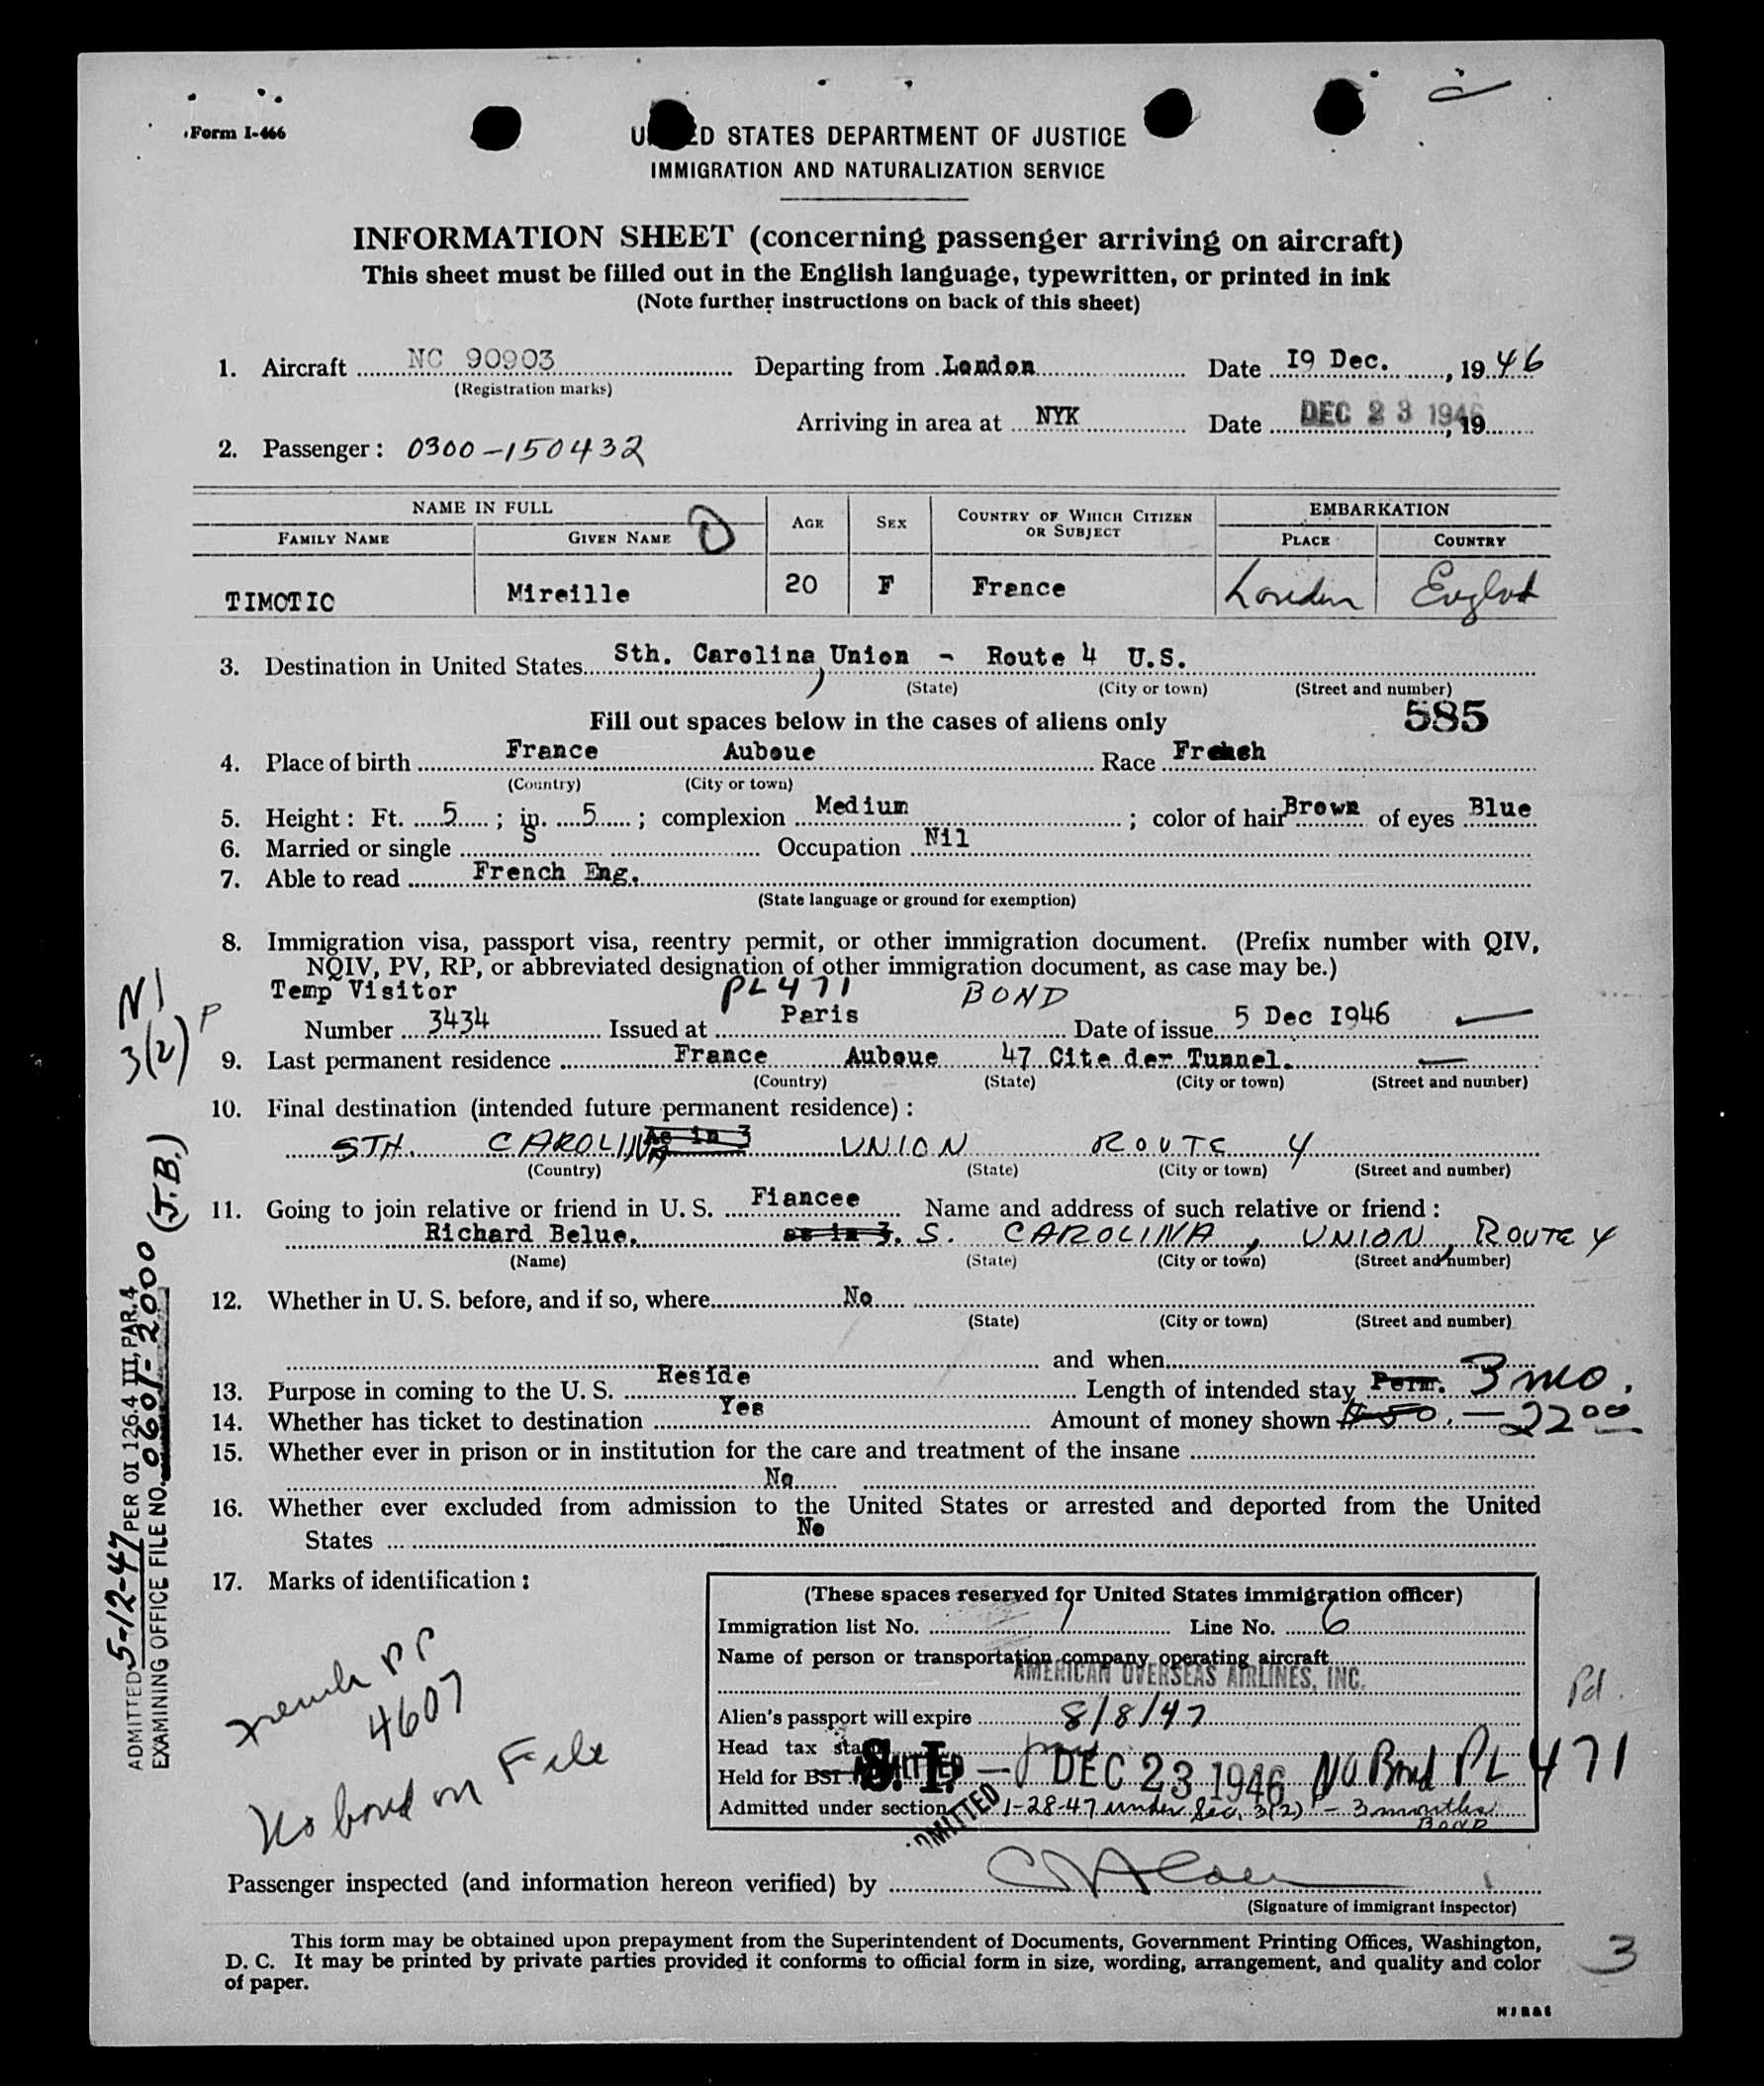 Form I-466
UNITED STATES DEPARTMENT OF JUSTICE
IMMIGRATION AND NATURALIZATION SERVICE
INFORMATION SHEET (concerning passenger arriving on aircraft)
This sheet must be filled out in the English language, typewritten, or printed in ink
(Note further instructions on back of this sheet)
1. Aircraft NC 90903 Departing from London Date I9 Dec. , 1946
(Registration marks)
Arriving in area at NYK Date DEC 23 1946, 19
2. Passenger: 0300-150432
NAME IN FULL AGE SEX COUNTRY OF WHICH CITIZEN OR SUBJECT EMBARKATION
FAMILY NAME GIVEN NAME PLACE COUNTRY
TIMOTIC Mireille 20 F France London England
3. Destination in United States Sth. Carolina, Union - Route 4 U.S.
(State) (City or town) (Street and number)
Fill out spaces below in the cases of aliens only 585
4. Place of birth France Auboue Race French
(Country) (City or town)
5. Height: Ft. 5; in. 5; complexion Medium; color of hair Brown of eyes Blue
6. Married or single S Occupation Nil
7. Able to read French Eng.
(State language or ground for exemption)
8. Immigration visa, passport visa, reentry permit, or other immigration document. (Prefix number with QIV,
NQIV, PV, RP, or abbreviated designation of other immigration document, as case may be.)
Temp Visitor PL 471 BOND
Number 3434 Issued at Paris Date of issue 5 Dec I946
N1
3(2) P
9. Last permanent residence France Auboue 47 Cite der Tunnel.
(Country) (State) (City or town) (Street and number)
10. Final destination (intended future permanent residence):
STH. CAROLINA As in 3 UNION ROUTE 4
(Country) (State) (City or town) (Street and number)
11. Going to join relative or friend in U. S. Fiancee Name and address of such relative or friend:
Richard Belue, as in 3. S. CAROLINA, UNION, ROUTE 4
(Name) (State) (City or town) (Street and number)
12. Whether in U. S. before, and if so, where No
(State) (City or town) (Street and number)
and when
13. Purpose in coming to the U. S. Reside Length of intended stay Perm. 3 mo.
14. Whether has ticket to destination Yes Amount of money shown $ 50. — 22 00
15. Whether ever in prison or in institution for the care and treatment of the insane
No
16. Whether ever excluded from admission to the United States or arrested and deported from the United
States No
17. Marks of identification:
French PP
4607
No bond on File
ADMITTED 5-12-47 PER OI 126.4 III, PAR. 4
EXAMINING OFFICE FILE NO. 0601-2000 (J.B.)
(These spaces reserved for United States immigration officer)
Immigration list No. 1 Line No. 6
Name of person or transportation company operating aircraft
AMERICAN OVERSEAS AIRLINES, INC.
Alien's passport will expire 8/8/47
Head tax status
Held for BSI S. I. ADMITTED — DEC 23 1946 NO Bond PL 471
Admitted under section ADMITTED 1-28-47 under Sec. 3(2) P - 3 months
BOND
Pd.
Passenger inspected (and information hereon verified) by
(Signature of immigrant inspector)
This form may be obtained upon prepayment from the Superintendent of Documents, Government Printing Offices, Washington,
D. C. It may be printed by private parties provided it conforms to official form in size, wording, arrangement, and quality and color
of paper.
3